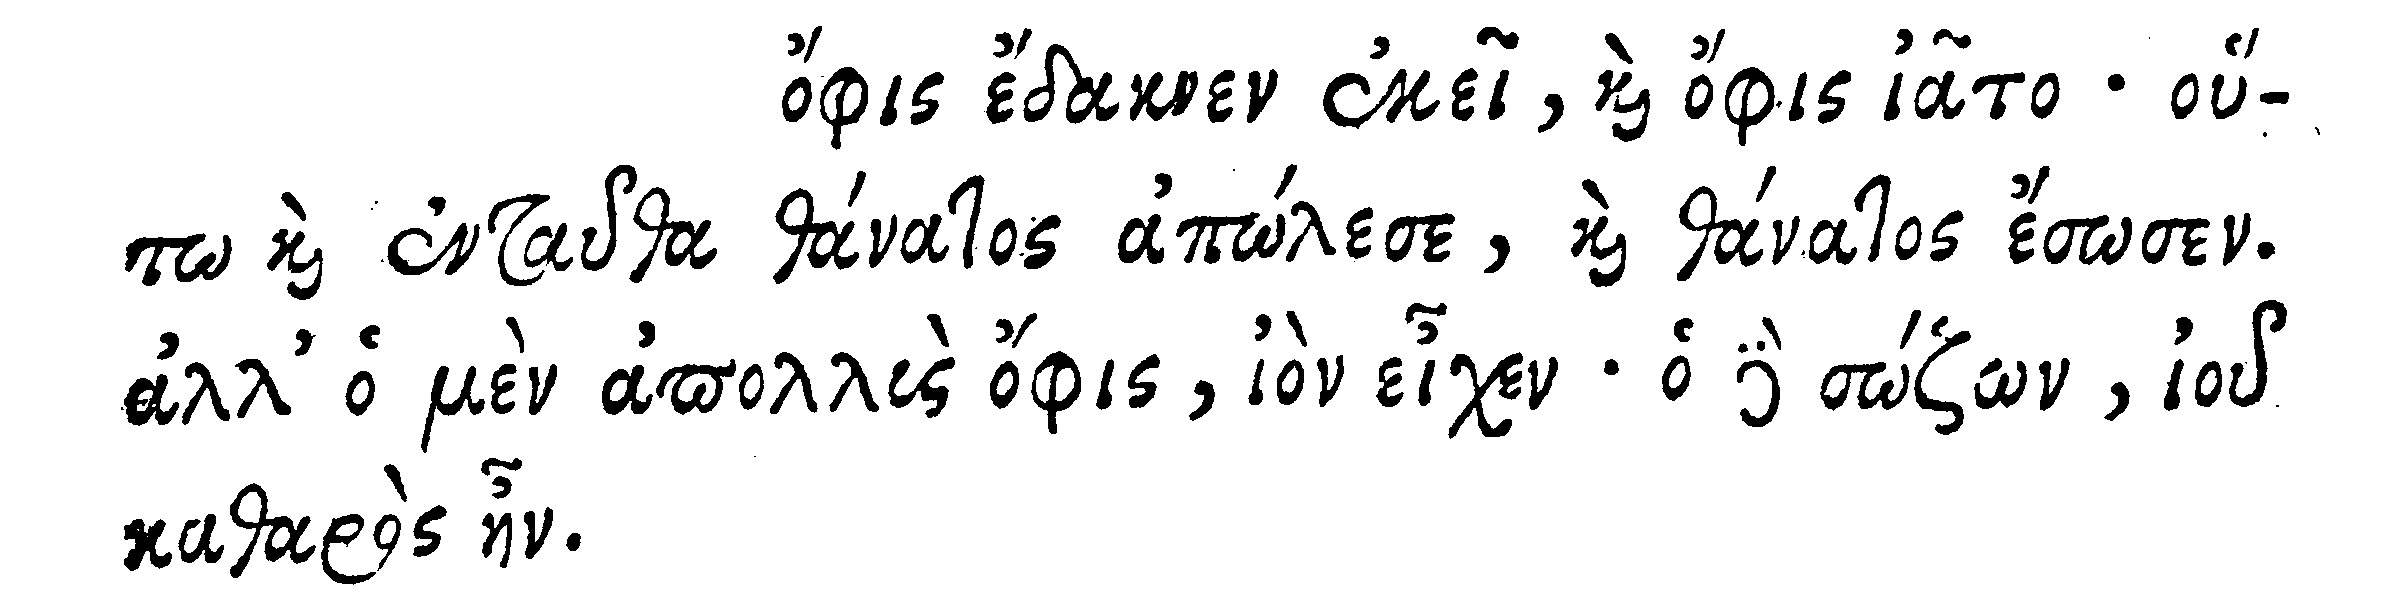 ὄφις ἔδακνεν ἐκεῖ, καὶ ὄφις ἰᾶτο · οὕ-
τω καὶ ἐνταῦθα θάνατος ἀπώλεσε, καὶ θάνατος ἔσωσεν.
ἀλλ' ὁ μὲν ἀπολλὺς ὄφις, ἰὸν εἶχεν · ὁ δὲ σώζων, ἰοῦ
καθαρὸς ἦν.